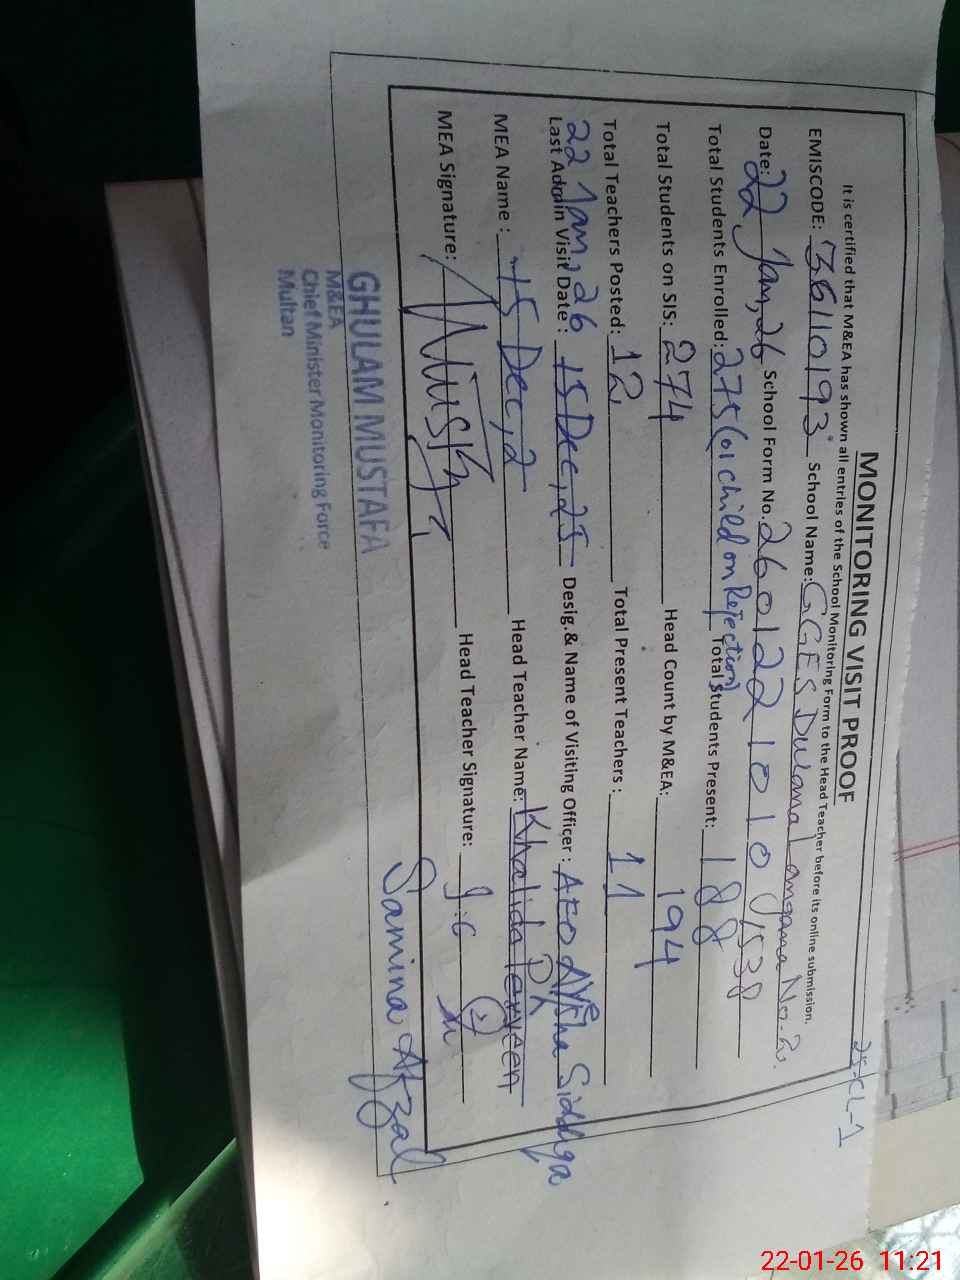 25-CL-1
MONITORING VISIT PROOF
It is certified that M&EA has shown all entries of the School Monitoring Form to the Head Teacher before its online submission.
EMISCODE: 36110193 School Name: GGES Dulana Langana No.2.
Date: 22 Jan, 26 School Form No. 2601221010
Total Students Enrolled: 275 (01 child on Rejection) Total Students Present: 188
Total Students on SIS: 274 Head Count by M&EA: 194
Total Teachers Posted: 12 Total Present Teachers : 11
22 Jan, 26
Last Admin Visit Date : 15 Dec, 25 Desig.& Name of Visiting Officer : AEO Ayesha Siddiqa
MEA Name : 15 Dec, 2 Head Teacher Name: Khalida Perveen
MEA Signature: Head Teacher Signature: I.C
Samina Afzal
GHULAM MUSTAFA
M&EA
Chief Minister Monitoring Force
Multan
22-01-26 11:21